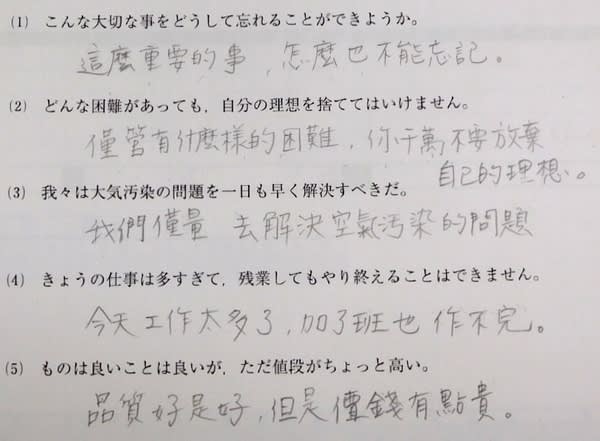 (1) こんな大切な事をどうして忘れることができようか。
這麼重要的事,怎麼也不能忘記。
(2) どんな困難があっても,自分の理想を捨ててはいけません。
僅管有什麼樣的困難,你千萬不要放棄
自己的理想。
(3) 我々は大気汚染の問題を一日も早く解決すべきだ。
我們僅量 去解決空氣汚染的問題
(4) きょうの仕事は多すぎて,残業してもやり終えることはできません。
今天工作太多了,加了班也作不完。
(5) ものは良いことは良いが,ただ値段がちょっと高い。
品質好是好,但是價錢有點貴。